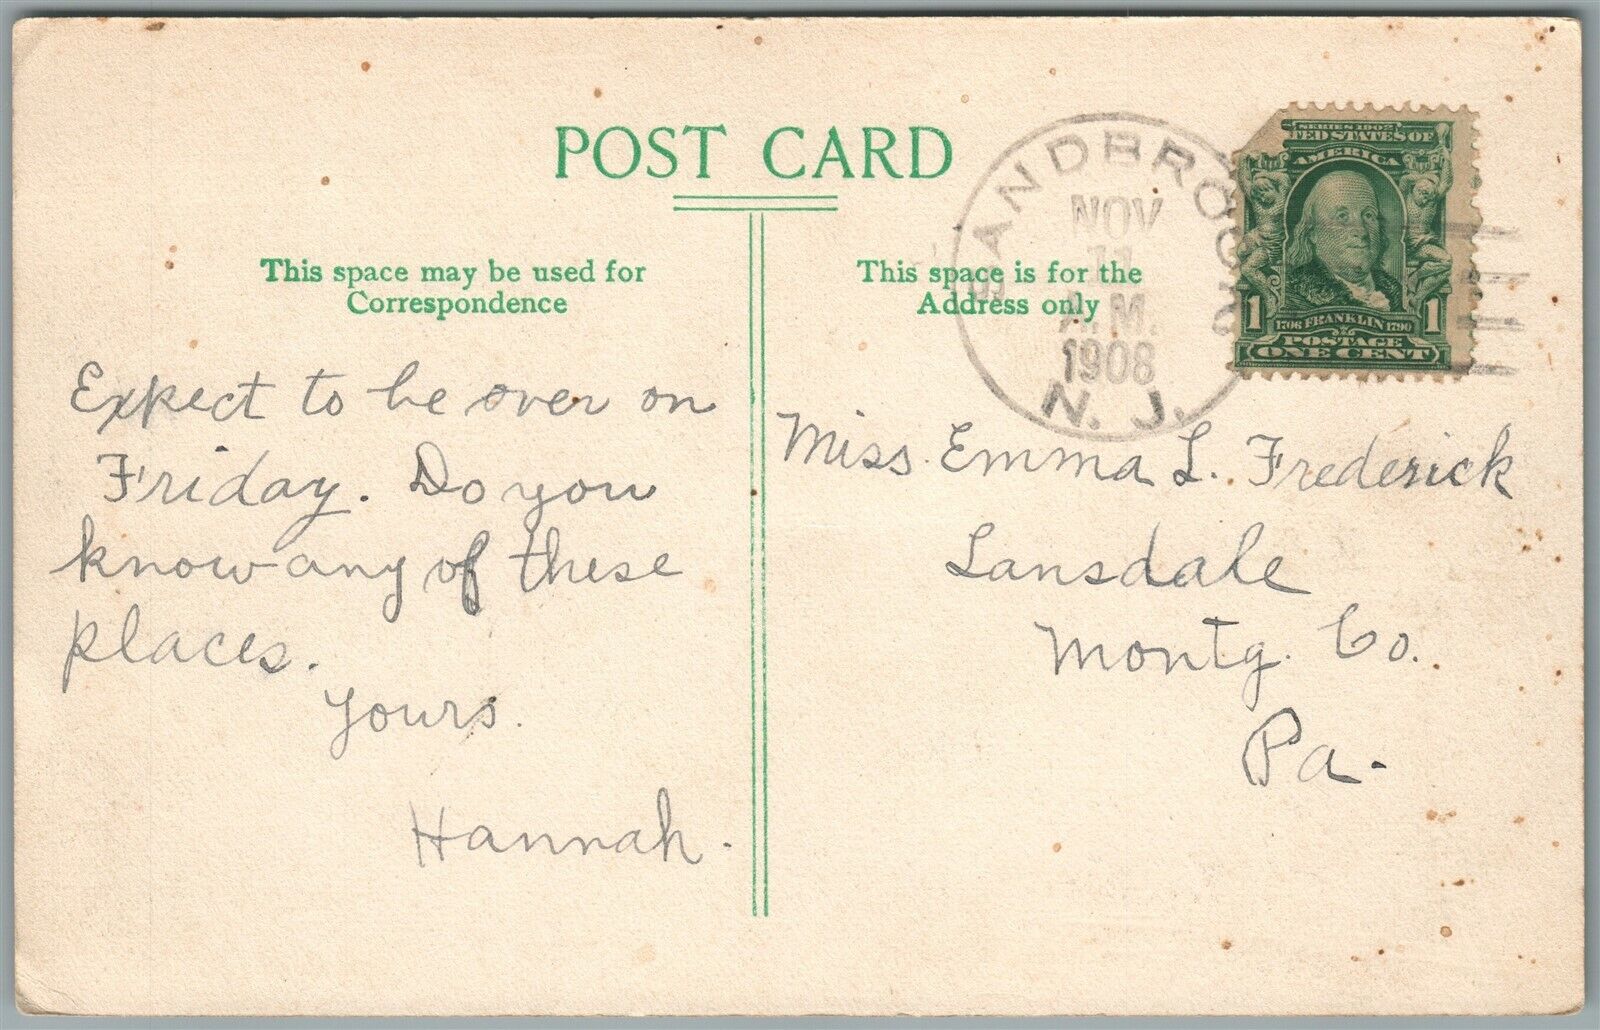 POST CARD
This space may be used for
Correspondence
Expect to be over on
Friday. Do you
know any of these
places.
Yours.
Hannah.
This space is for the
Address only
SANDBROOK
NOV
11
A.M.
1908
N. J.
SERIES 1902
TED STATES OF
AMERICA
1 1
1706 FRANKLIN 1790
POSTAGE
ONE CENT
Miss. Emma L. Frederick
Lansdale
Montg. Co.
Pa.